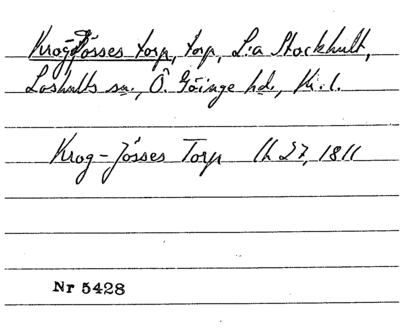 Krog-Jösses torp, torp, L:a Stockhult,
Loshults sn., Ö. Göinge hd., Kr. l.
Krog-Jösses Torp lh 27, 1811
Nr 5428